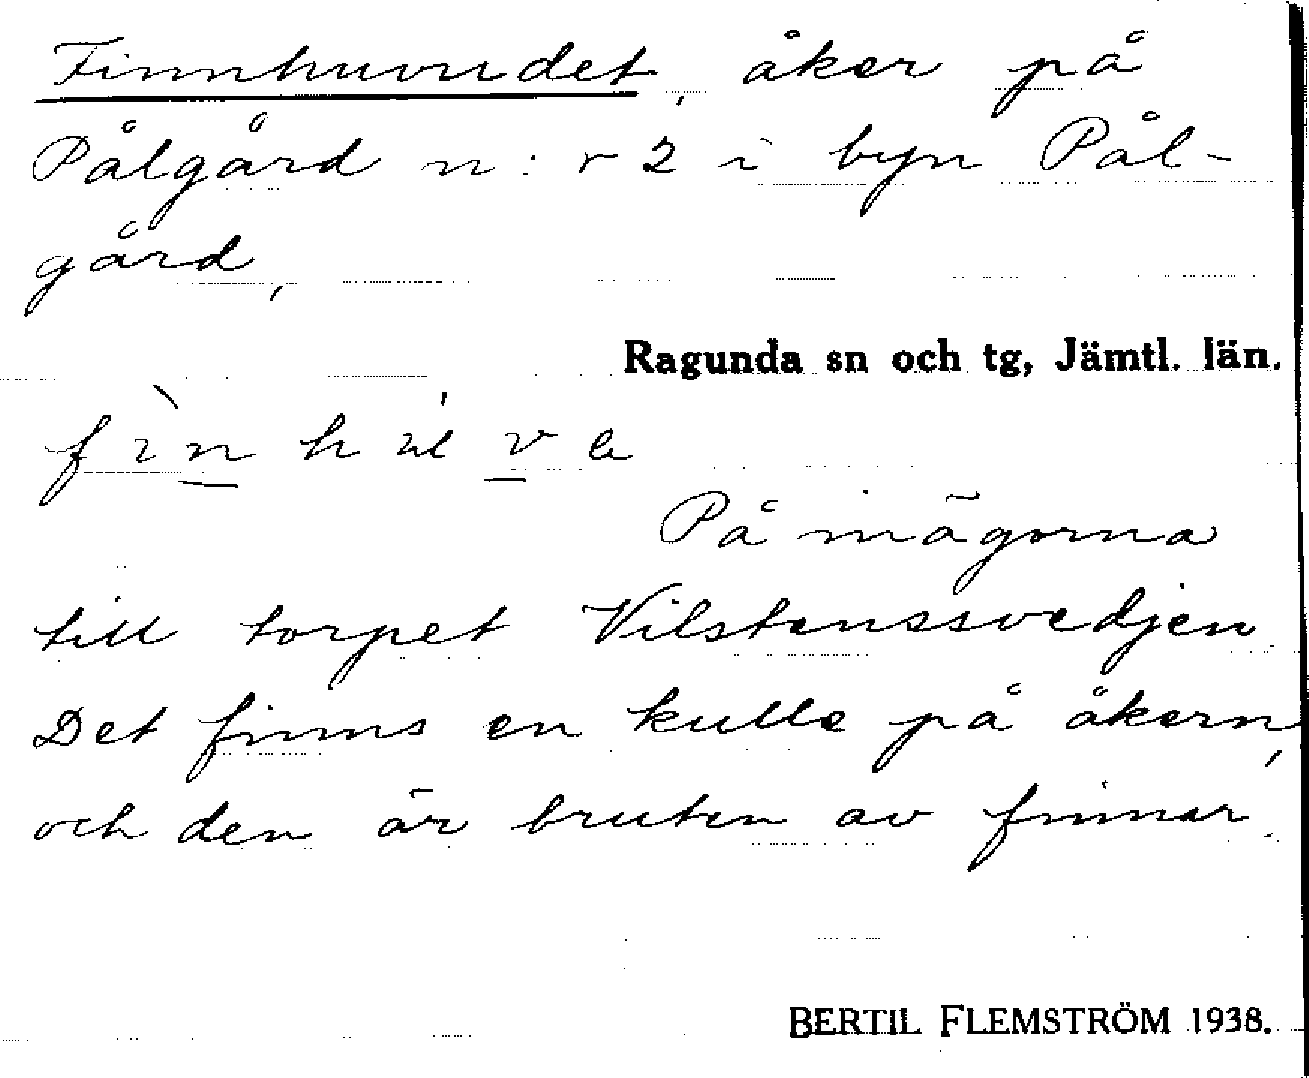 Finnhuvudet, åker på
Pålgård n:r 2 i byn Pål-
gård,
Ragunda sn och tg, Jämtl. län.
På inägorna
till torpet Vilstenssvedjen.
Det finns en kulle på åkern,
och den är bruten av finnar.
BERTIL FLEMSTRÖM 1938.